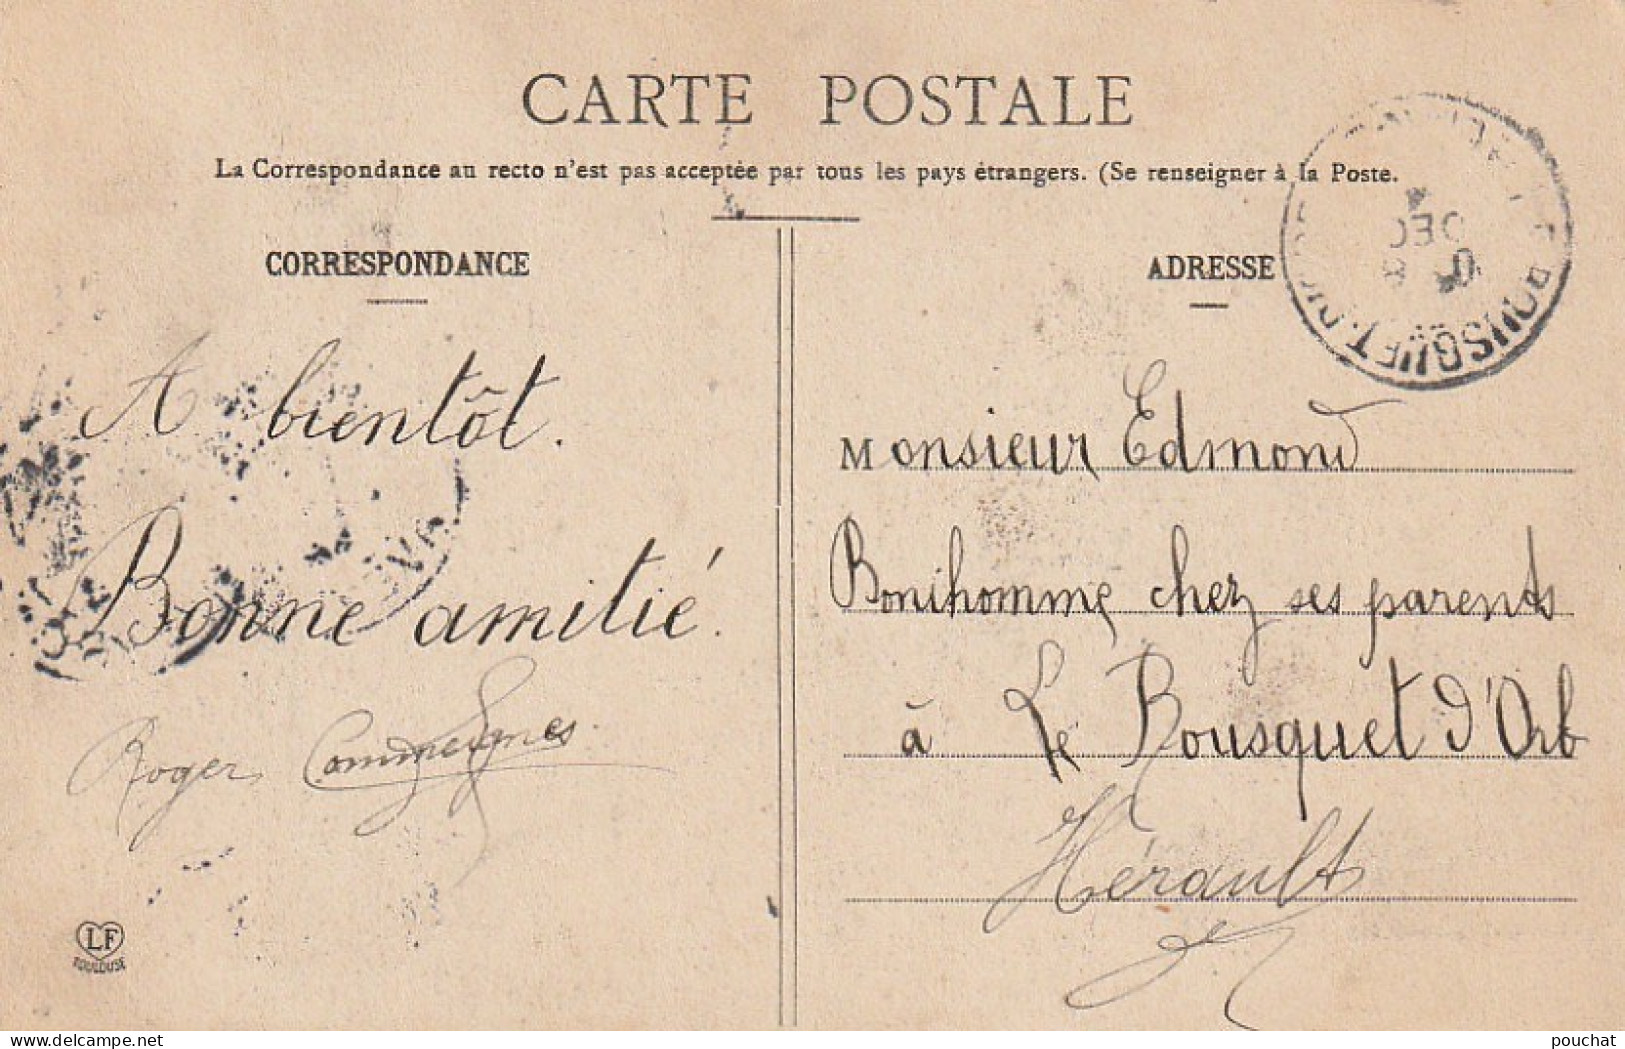 CARTE POSTALE
La Correspondance au recto n'est pas acceptée par tous les pays étrangers. (Se renseigner à la Poste.
CORRESPONDANCE
A bientôt.
Bonne amitié.
Roger
LF
TOULOUSE
ADRESSE
BOUSQUET-D'ORB
DEC
Monsieur Edmond
Bonihomme chez ses parents
à Le Bousquet d'Orb
Hérault
pouchat